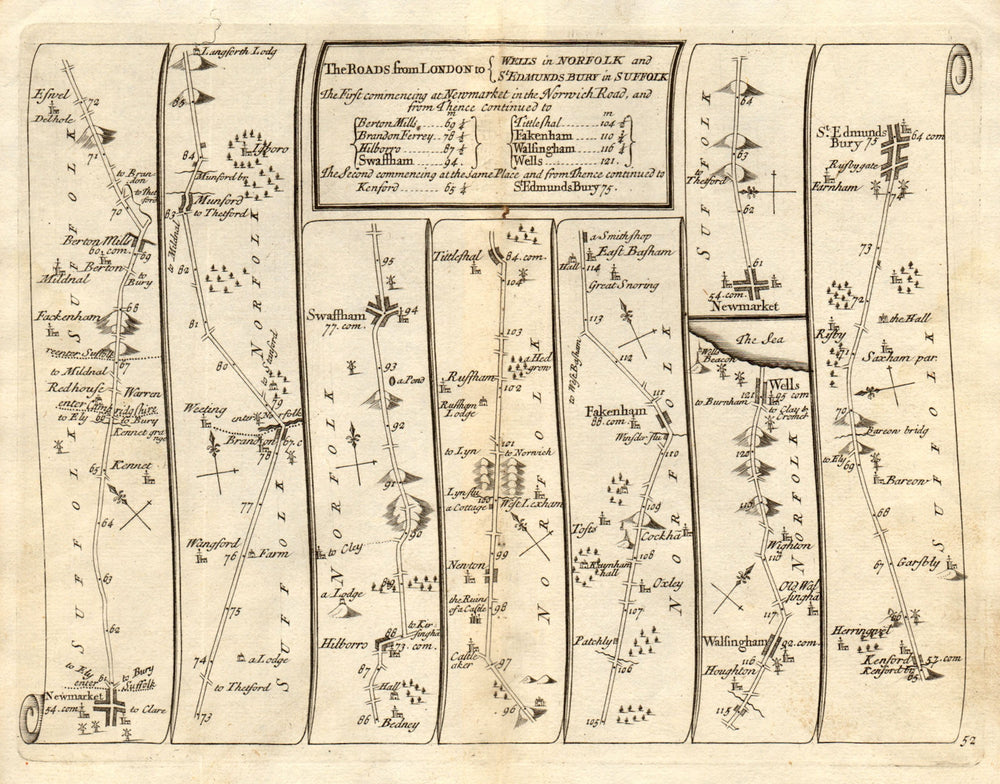 The ROADS from LONDON to { WELLS in NORFOLK and
St EDMUNDS BURY in SUFFOLK
The First commencing at Newmarket in the Norwich Road, and
from Thence continued to
m
Berton Mills 69 1/4
Brandon Ferrey 78 1/4
Hilboro 87 1/2
Swaffham 94
m
Tittleshal 104 1/2
Fakenham 110 1/2
Walsingham 116 1/4
Wells 121
The Second commencing at the Same Place and from Thence continued to
Kenford 65 1/4
St Edmunds Bury 75
Eswel
Delhole
72
71
to Bran
don
to Thet
ford
70
Berton Mills
60 com.
69
Berton
to
Bury
Mildnal
68
Fackenham
reenter Suffolk
67
to Mildnal
Redhouse
Warren
enter
Cambridgshire
to Ely
66
to Bury
Kennet
65
64
63
62
to Ely
enter
61
to Bury
Suffolk
Newmarket
54 com
to Clare
SUFFOLK
SUFFOLK
Langforth Lodg
85
84
Ilboro
Munford br
Munford
83
to Thetford
to Mildnal
82
81
80
to Thetford
79
Weeting
enter Norfolk
Brandon
67. c
78
77
Wangford
76
Farm
75
74
a Lodge
to Thetford
73
NORFOLK
SUFFOLK
95
Swaffham
77. com.
94
93
a Pond
92
91
90
to Clay
89
a Lodge
88
to Kir
singha
Hilborro
73. com.
87
Hall
86
Bedney
NORFOLK
Tittleshal
84. com
104
103
a Hed
grow
Russham
102
Russham
Lodge
101
to Lyn
to Norwich
Lyn flu
100
West Lexham
a Cottage
99
Newton
the Ruins
of a Castle
98
Castle
aker
97
96
NORFOLK
a Smith shop
East Basham
Hall
114
Great Snoring
113
112
to West Basham
111
Fakenham
88. com
Winsder flu
110
109
Tofts
Cockha
108
Raynham
hall
Oxley
107
Patchly
106
105
NORFOLK
64
63
to
Thetford
62
61
54. com
Newmarket
SUFFOLK
The Sea
Wells
Beacon
Wells
121
95 com
to Burnham
to Clay &
Cromer
120
119
Wighton
118
Old Wal
singha
117
Walsingham
92. com
116
Houghton
115
NORFOLK
St. Edmunds
Bury 75
64 com
Risbygate
Earnham
74
73
72
the Hall
Ryby
71
Saxham par.
70
Bareon bridg
to Ely
69
Bareon
68
67
Garsbly
66
Herringwel
Kenford
57. com
Kenford br
65
SUFFOLK
52